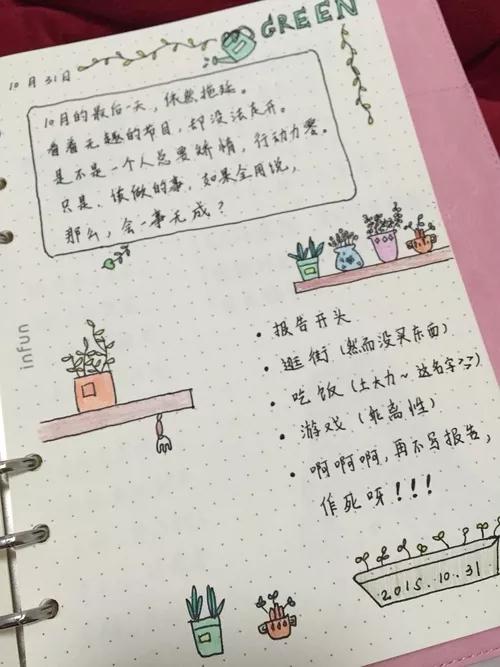 GREEN
10月31日
10月的最后一天，依然拖延。
看着无趣的节目，却没法走开。
是不是一个人总要矫情，行动力零。
只是，该做的事，如果全用说，
那么，会一事无成？
infun
• 报告开头
• 逛街（然而没买东西）
• 吃饭（土大力~这名字??）
• 游戏（耗离性）
• 啊啊啊，再不写报告，
作死呀！！！
2015.10.31